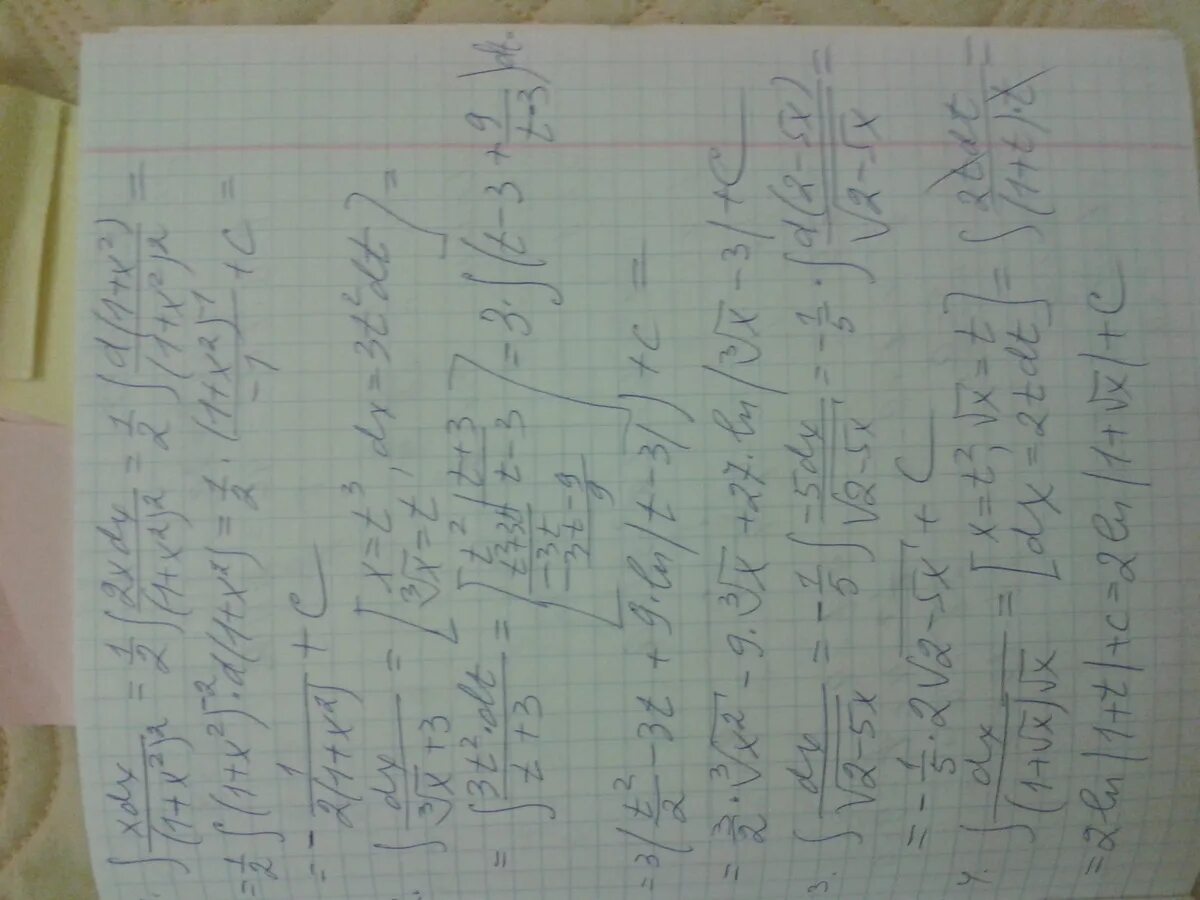 ∫ xdx/(1+x²)² = 1/2 ∫ 2xdx/(1+x²)² = 1/2 ∫ d(1+x²)/(1+x²)² =
= 1/2 ∫ (1+x²)⁻² · d(1+x²) = 1/2 · (1+x²)⁻¹/-1 + C =
= - 1/2(1+x²) + C
∫ dx/(∛x+3) = [x=t³, dx=3t²dt
∛x=t] =
= ∫ 3t²·dt/(t+3) = [t² | t+3
t²+3t | t-3
-3t
-3t-9
9] = 3·∫(t-3+9/(t-3))dt =
= 3(t²/2 - 3t + 9·ln|t-3|) + C =
= 3/2 · ∛x² - 9·∛x + 27·ln|∛x-3| + C
3. ∫ dx/√(2-5x) = -1/5 ∫ -5dx/√(2-5x) = -1/5 · ∫ d(2-5x)/√(2-5x) =
= -1/5 · 2√(2-5x) + C
4. ∫ dx/((1+√x)√x) = [x=t², √x=t
dx=2tdt] = ∫ 2tdt/((1+t)·t) =
= 2ln|1+t|+C = 2ln|1+√x|+C